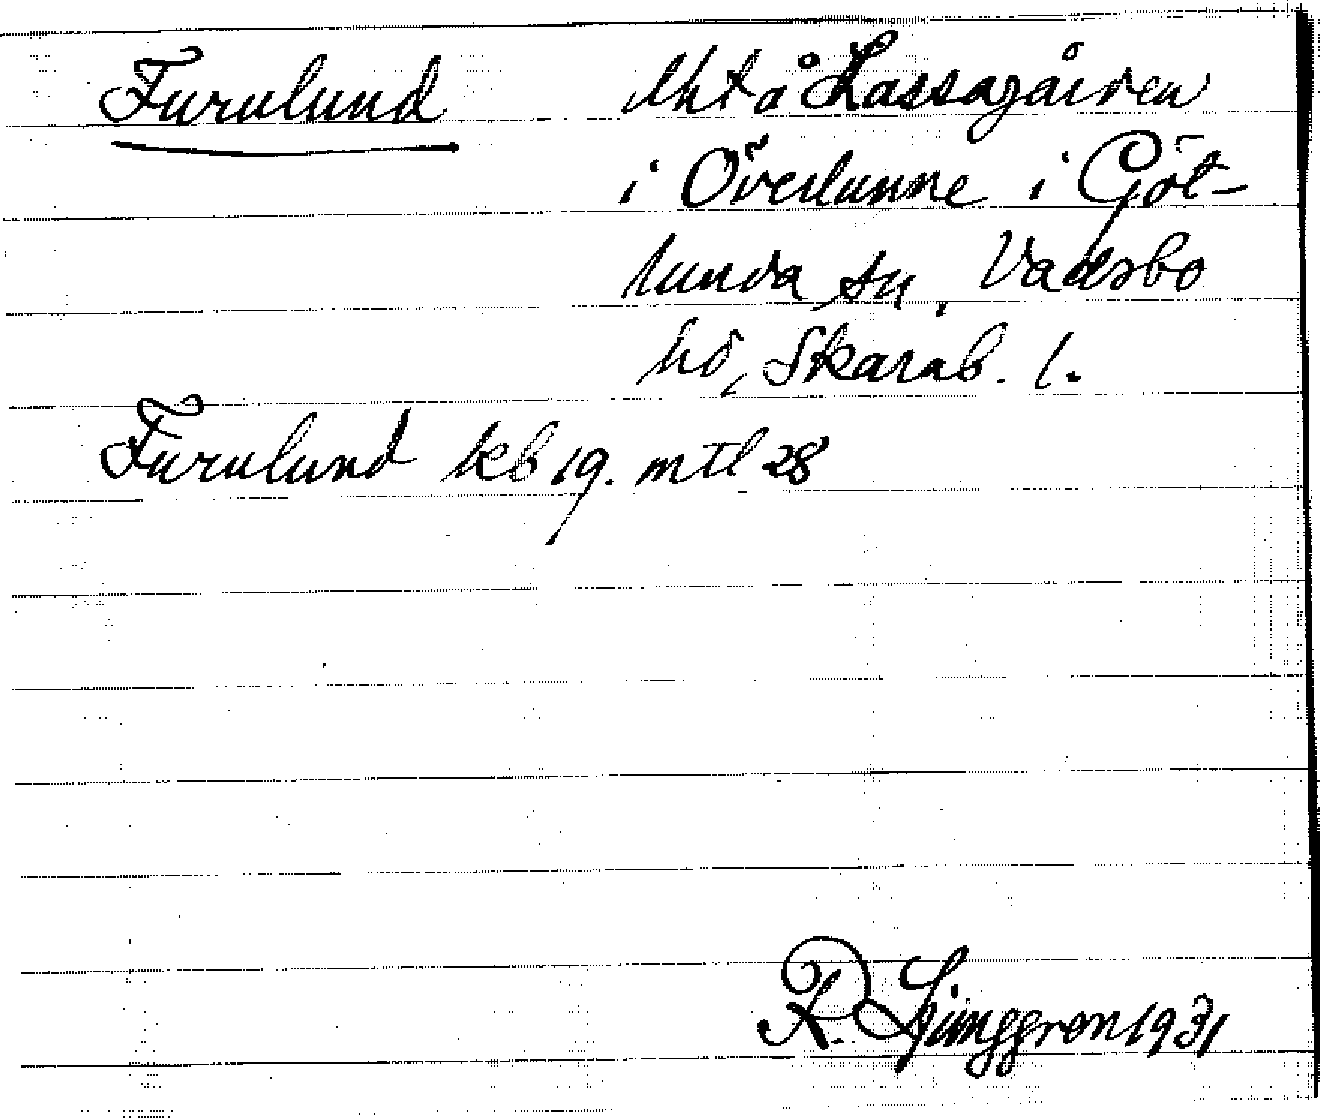 Furulund lht å Lassagården
i Överlunne i Göt-
lunda sn, Vadsbo
hd, Skarab. l.
Furulund kb 19. mtl 28
K. Ljunggren 1931